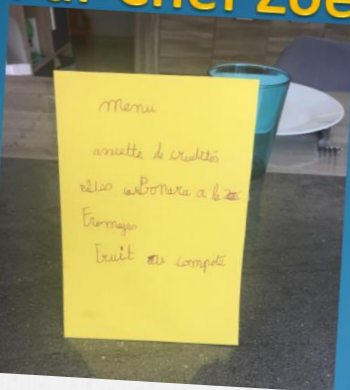 Chef Zoé
Menu
assiette de crudités
carBonara a la
Fromages
Fruit ou compote